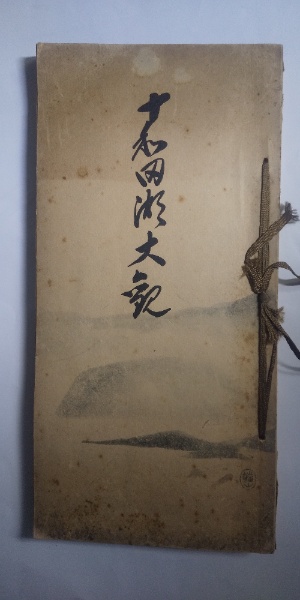 十和田湖大観